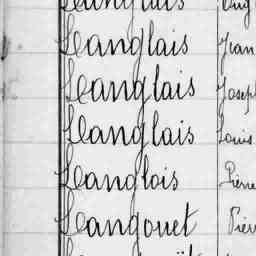 Langlais
Langlais Jean
Langlais Josep
Langlais Louis
Langlois Pierre
Langouet Pier